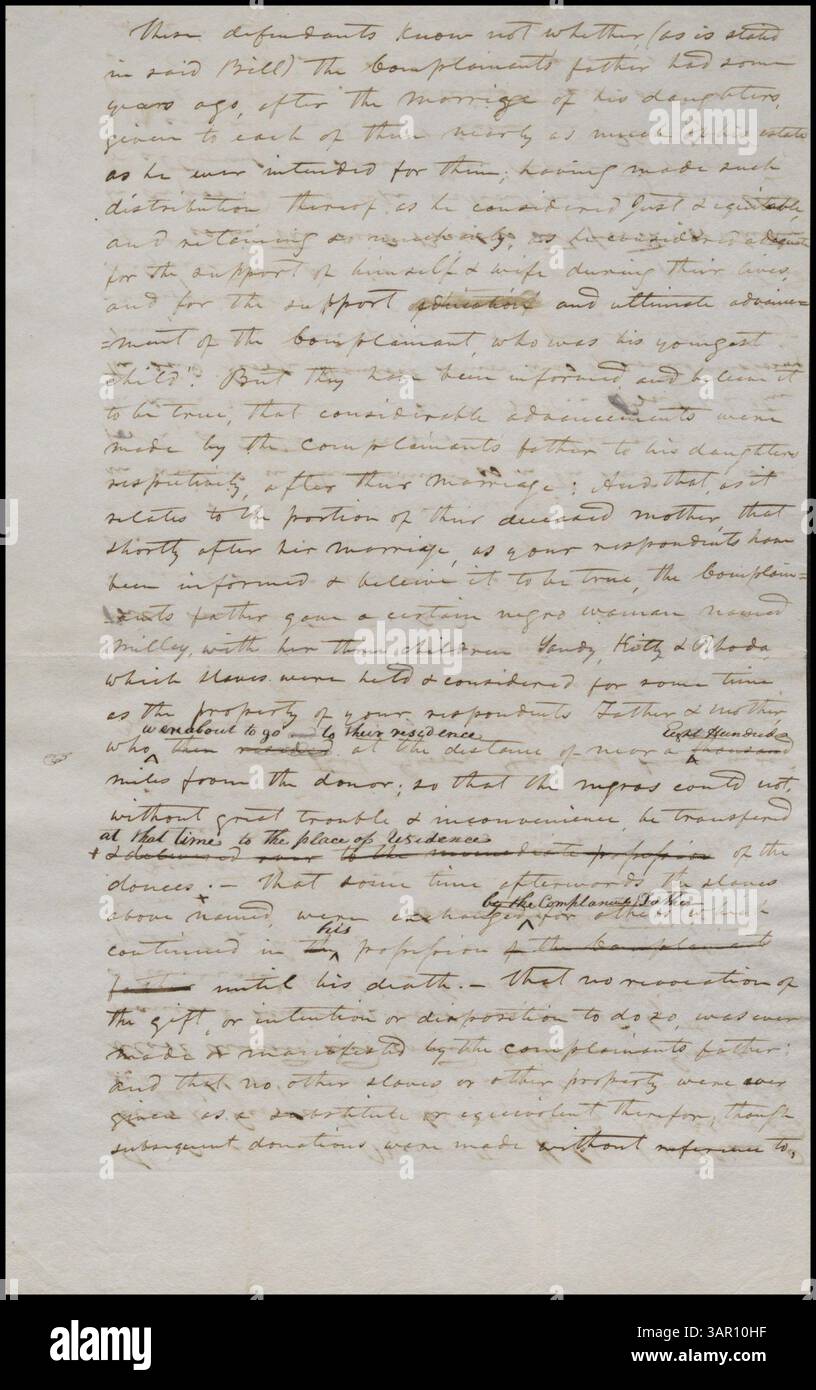 These defendants know not whether, (as is stated
in said Bill) the Complainants father had some
years ago, after the marriage of his daughters,
given to each of them nearly as much of his estate
as he ever intended for them; having made such
distribution thereof as he considered just & equitable,
and retaining so much only, as he considered adequate
for the support of himself & wife during their lives,
and for the support education and ultimate advance=
=ment of the Complainant, who was his youngest
child. But they have been informed and beleive it
to be true, that considerable advancements were
made by the Complainants father to his daughters
respectively, after their marriage: And that, as it
relates to the portion of their deceased mother, that
shortly after her marriage, as your respondents have
been informed & beleive it to be true, the Complain=
=ants father gave a certain negro woman named
Milley, with her three children Yandy, Kitty & Rhoda,
which slaves were held & considered for some time
as the property of your respondents Father & mother
were about to go to their residence Eight Hundred
who then resided at the distance of near a thousand
miles from the donor; so that the negros could not,
without great trouble & inconvenience, be transfered
at that time to the place of residence
& delivered over to the immediate possession of the
donees. – That some time afterwords the slaves
by the Complainants Father
above named, were exchanged for others which
his
continued in the possession of the Complainants
father until his death. – That no revocation of
the gift, or intention or disposition to do so, was ever
made or manifested by the complainants father:
and that no other slaves or other property were ever
given as a substitute or equivalent therefore, though
subsequent donations were made without reference to,
alamy
Image ID: 3AR10HF
www.alamy.com